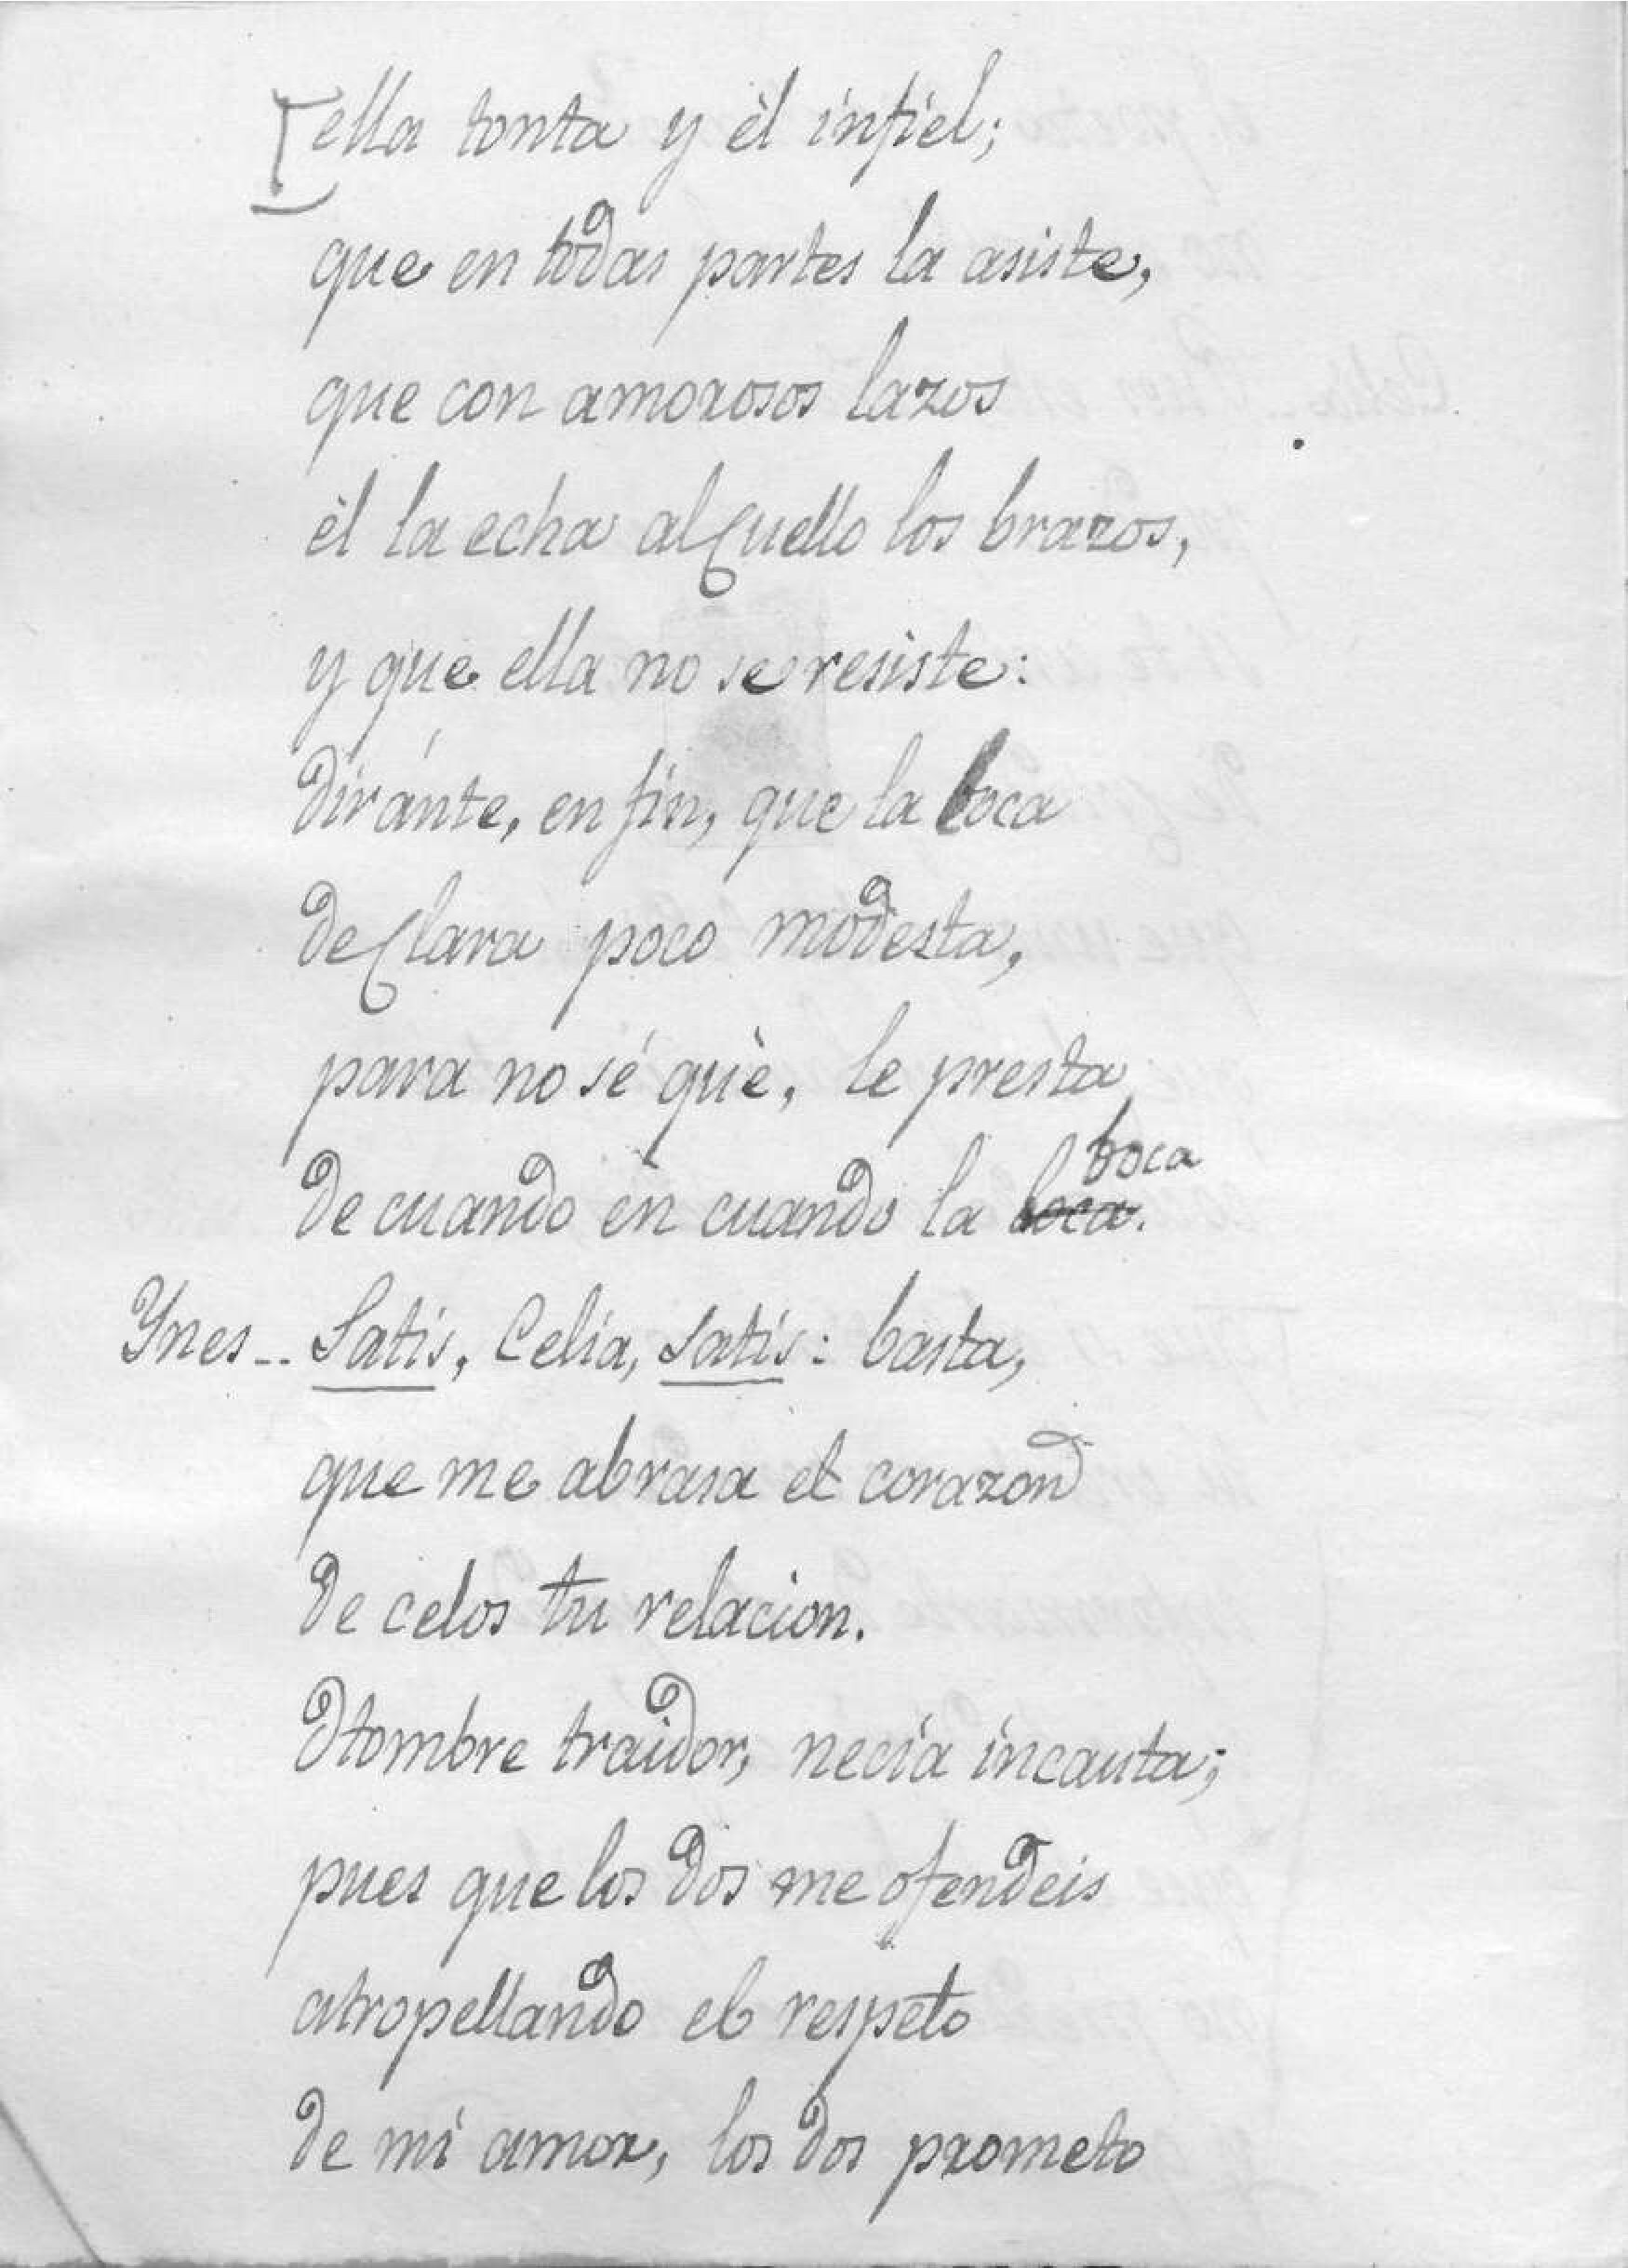 ella tonta y èl infiel;
que en todas partes la asiste,
que con amorosos lazos
èl la echa al Cuello los brazos,
y que ella no se resiste:
Diránte, en fin, que la loca
de Clara poco modesta,
para no sé què, le presta
boca
de cuando en cuando la boca.
Ynes-- Satis, Celia, satis: basta,
que me abrasa el corazon
de celos tu relacion.
Hombre traidor, necia incauta;
pues que los dos me ofendeis
atropellando el respeto
de mi amor, los dos prometo